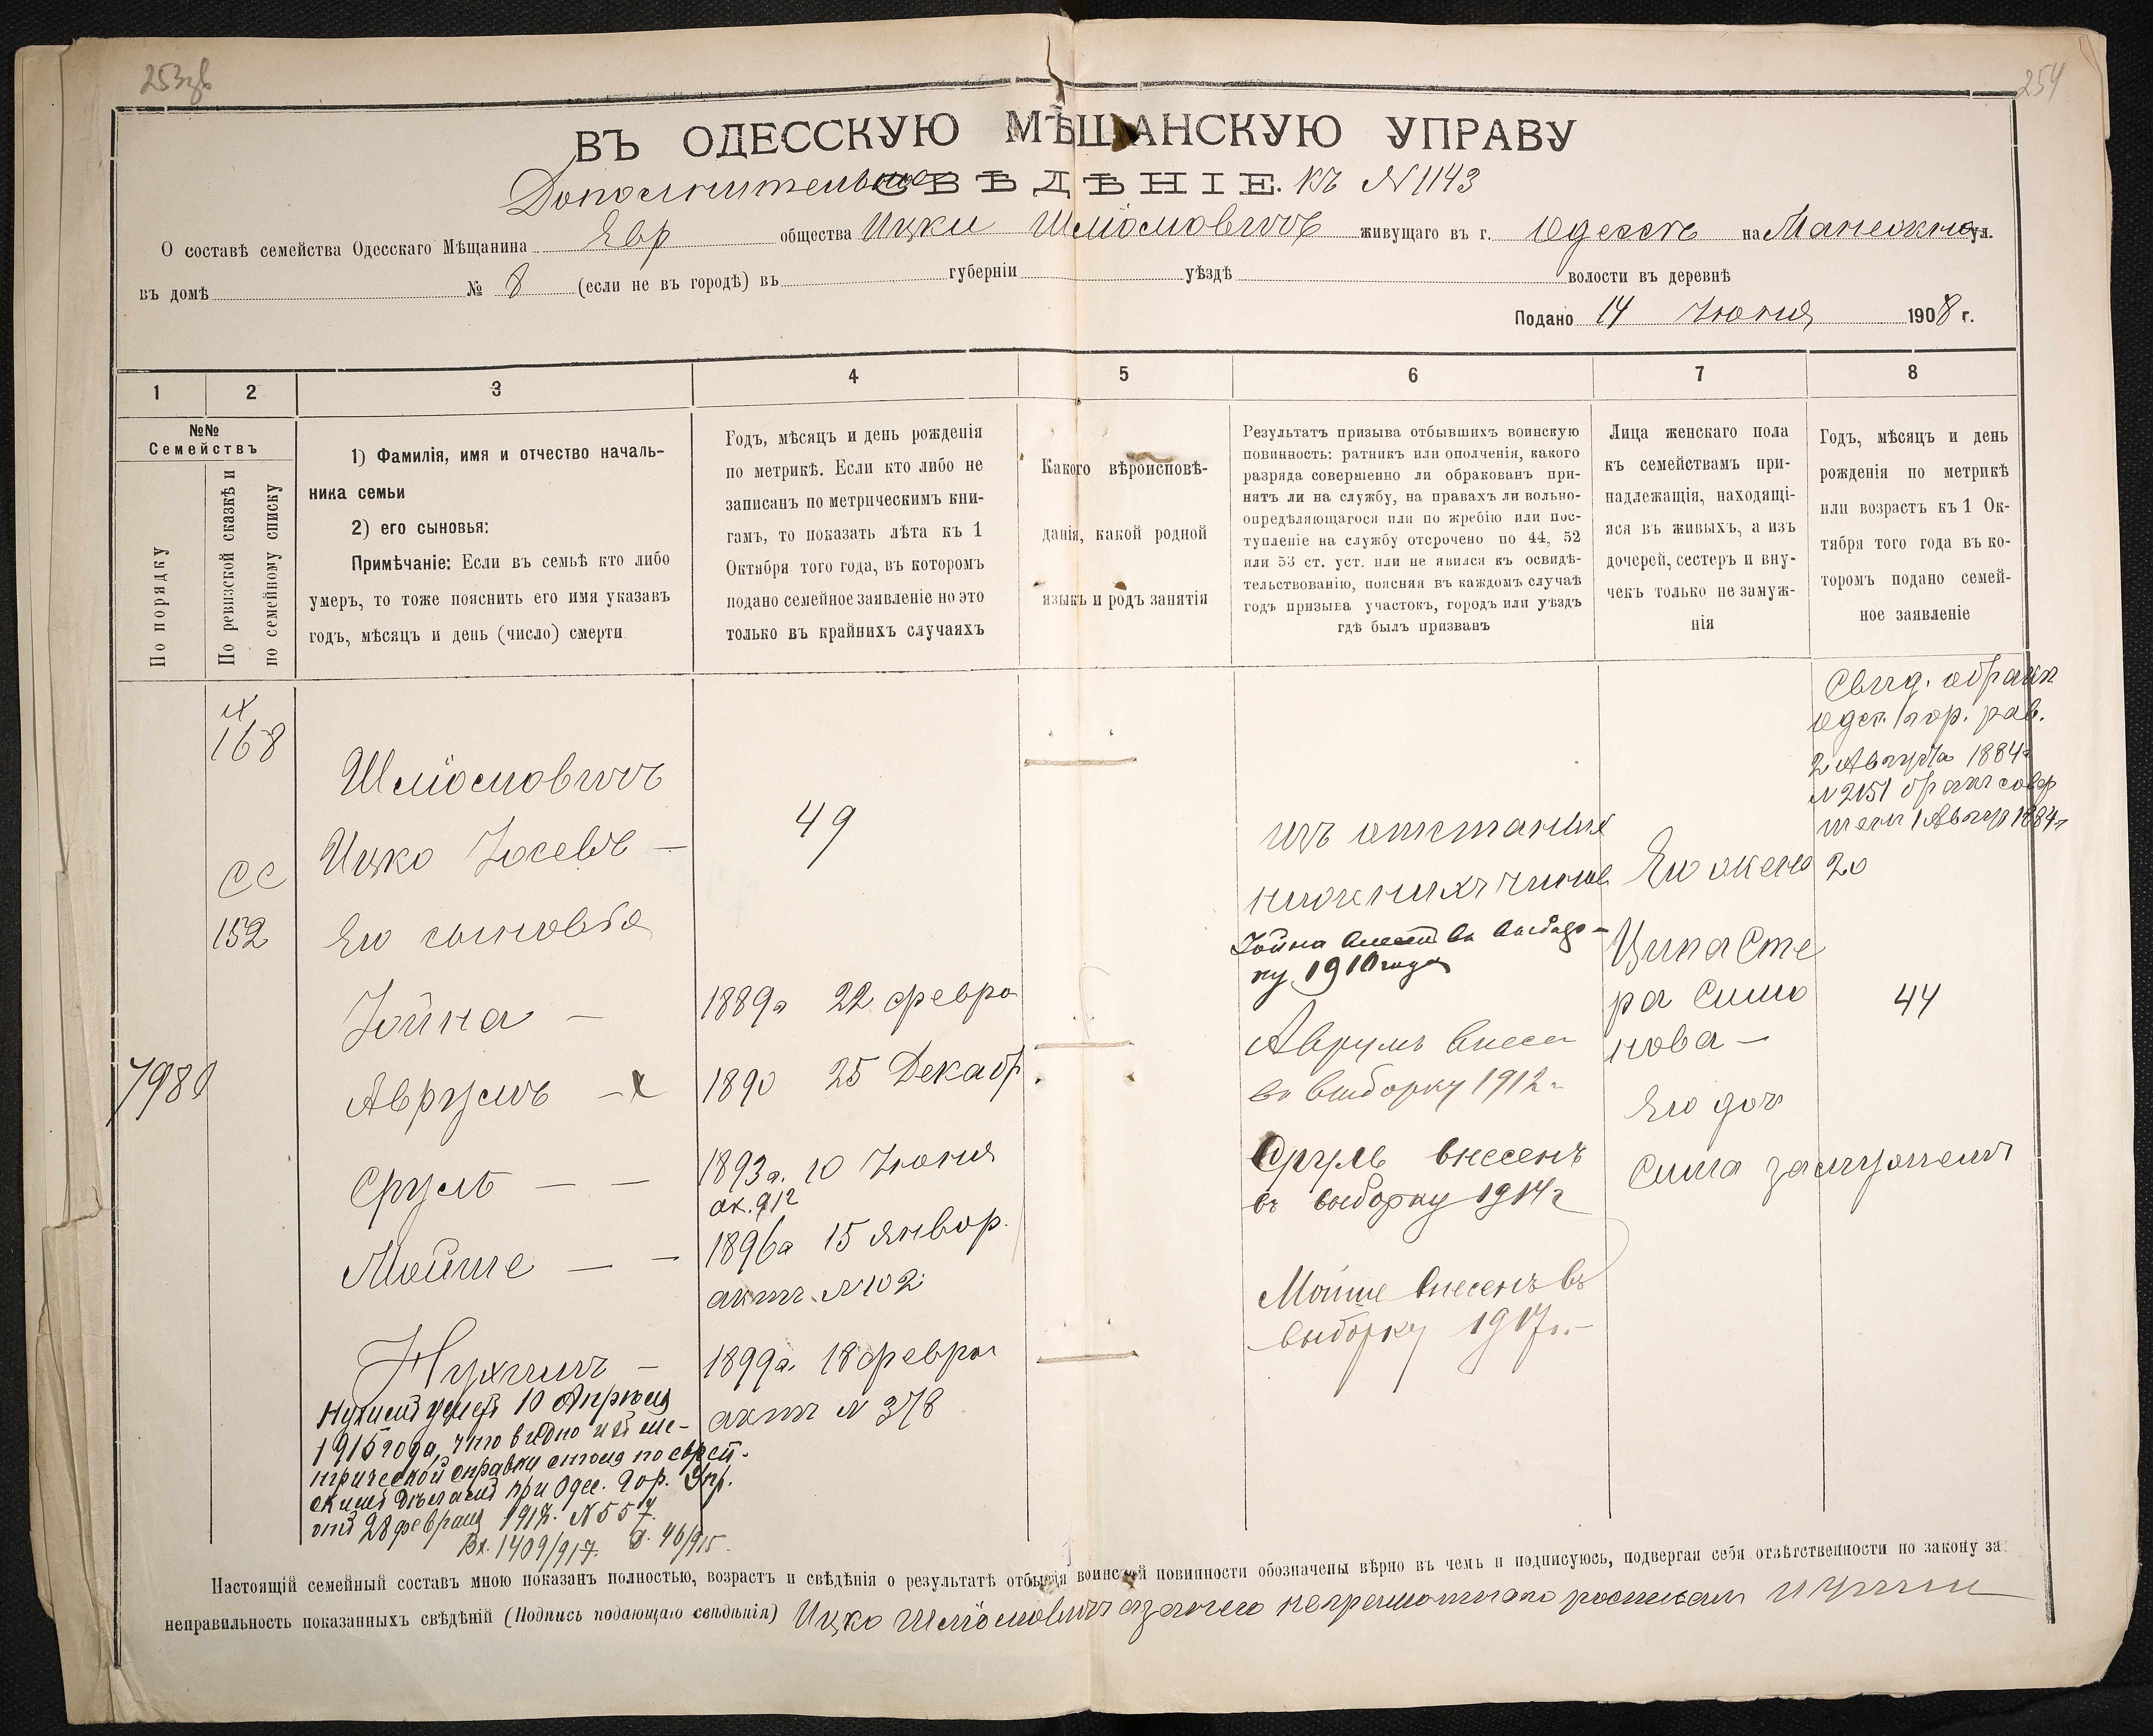 254
ВЪ ОДЕССКУЮ МѢЩАНСКУЮ УПРАВУ
Дополнительное СВѢДѢНІЕ. Къ № 1143
О составѣ семейства Одесскаго Мѣщанина Евр общества Ицки Шліомовичъ живущаго въ г. Одессѣ на ул.
въ домѣ № 8 (если не въ городѣ) въ губерніи уѣздѣ волости въ деревнѣ
Подано 14 Іюня 1908 г.
1 2 3 4 5 6 7 8
№№
Семействъ
По порядку
По ревизской сказкѣ и
по семейному списку
1) Фамилія, имя и отчество началь-
ника семьи
2) его сыновья:
Примѣчаніе: Если въ семьѣ кто либо
умеръ, то тоже пояснить его имя указавъ
годъ, мѣсяцъ и день (число) смерти
Годъ, мѣсяцъ и день рожденія
по метрикѣ. Если кто либо не
записанъ по метрическимъ кни-
гамъ, то показать лѣта къ 1
Октября того года, въ которомъ
подано семейное заявленіе но это
только въ крайнихъ случаяхъ
Какого вѣроисповѣ-
данія, какой родной
языкъ и родъ занятія
Результатъ призыва отбывшихъ воинскую
повинность: ратникъ или ополченія, какого
разряда совершенно ли обракованъ при-
нятъ ли на службу, на правахъ ли вольно-
опредѣляющагося или по жребію или пос-
тупленіе на службу отсрочено по 44, 52
или 53 ст. уст. или не явился къ освидѣ-
тельствованію, поясняя въ каждомъ случаѣ
годъ призыва участокъ, городъ или уѣздъ
гдѣ былъ призванъ
Лица женскаго пола
къ семействамъ при-
надлежащія, находящі-
яся въ живыхъ, а изъ
дочерей, сестеръ и вну-
чекъ только незамуж-
нія
Годъ, мѣсяцъ и день
рожденія по метрикѣ
или возрастъ къ 1 Ок-
тября того года въ ко-
торомъ подано семей-
ное заявленіе
168
СС
152
7980
Шліомовичъ
Ицко Іосевъ —
Его сыновья
Іойна —
Аврумъ — х
Сруль — —
Мойше — —
Нухимъ —
Нухим умер 10 Апрѣля
1915 года, что видно из ме-
трической справки стола по еврей-
ским дѣлам при Одес. Гор. Упр.
от 28 февраля 1917. № 557.
Вх. 1409/917. д. 46/915.
49
1889г 22 февра
1890 25 Декабр
1893г. 10 Іюня
ак. 912
1896г 15 январ.
актъ № 102
1899г. 18 февра
актъ № 378
изъ отставныхъ
нижнихъ чиновъ
Іойна внесен в выбор-
ку 1910 года
Аврумъ внесен
въ выборку 1912 г
Сруль внесенъ
въ выборку 1914 г
Мойше внесенъ въ
выборку 1917г.—
Его жена
Ципа Сте
ра Симо
нова —
Его доч
Сима замужемъ
Свид. о бракѣ
одес. гор. рав.
2 Августа 1884г
№ 2151 бракъ совер
шенъ 1 Авгус 1884г
20
44
Настоящій семейный составъ мною показанъ полностью, возрастъ и свѣдѣнія о результатѣ отбытія воинской повинности обозначены вѣрно въ чемъ и подписуюсь, подвергая себя отвѣтственности по закону за
неправильность показанныхъ свѣдѣній (Подпись подающаго свѣдѣнія) Ицко Шліомовичъ а за него неграмотнаго